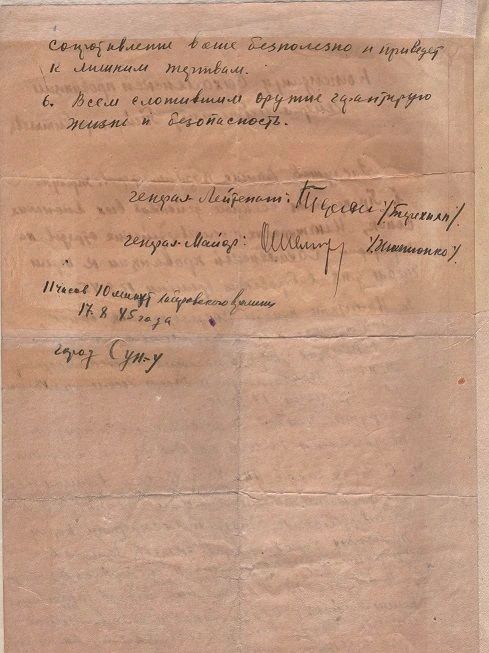 сопротивление ваше безполезно и приведет
к лишним жертвам.
6. Всем сложившим оружие гарантирую
жизнь и безопасность.
генерал Лейтенант:
генерал-Майор:
11 часов 10 минут хабаровского времени
17.8 45 года
город Сун-у